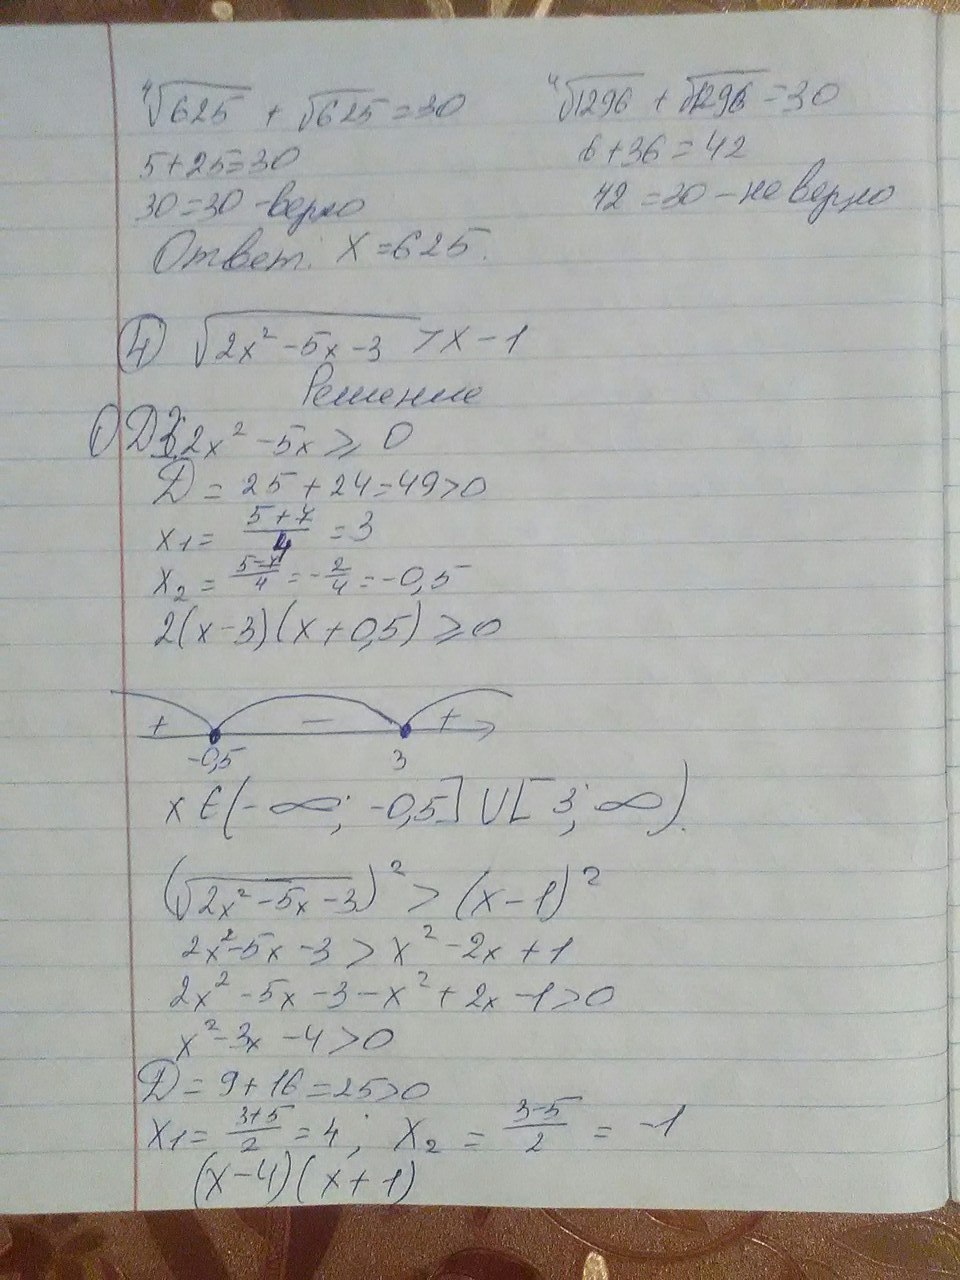 ⁴√625 + √625 = 30
5+25=30
30=30 - верно
Ответ: x=625.
⁴√1296 + √1296 = 30
6+36=42
42=30 - не верно
④ √(2x² - 5x - 3) > x - 1
Решение
ОДЗ: 2x² - 5x ⩾ 0
D = 25 + 24 = 49 > 0
x₁ = (5+7)/4 = 3
x₂ = (5-7)/4 = -2/4 = -0,5
2(x-3)(x+0,5) ⩾ 0
+ - +
-0,5 3
x ∈ (-∞; -0,5] ∪ [3; ∞).
(√(2x² - 5x - 3))² > (x-1)²
2x² - 5x - 3 > x² - 2x + 1
2x² - 5x - 3 - x² + 2x - 1 > 0
x² - 3x - 4 > 0
D = 9 + 16 = 25 > 0
x₁ = (3+5)/2 = 4; x₂ = (3-5)/2 = -1
(x-4)(x+1)